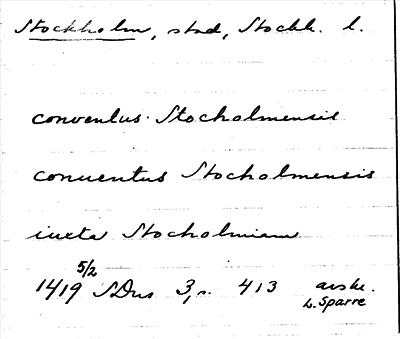 Stockholm, stad, Stockh. l.
conventus Stocholmensis
conuentus Stocholmensis
iuxta Stocholmiam
1419 5/2 SDns 3, s. 413 avskr.
L. Sparre